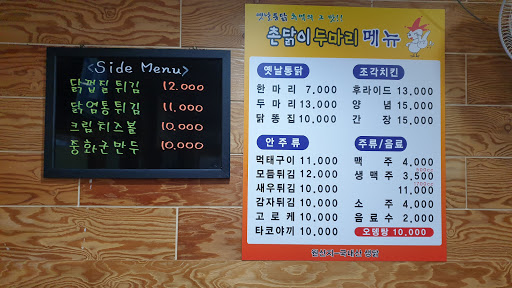 <Side Menu>
닭껍질튀김 12.000
닭엄통튀김 11.000
크림치즈볼 10.000
중화군만두 10.000
옛날통닭 추억의 그 맛!!
촌닭이두마리 메뉴
옛날통닭
한 마 리 7,000
두 마 리 13,000
닭 똥 집 10,000
조각치킨
후라이드 13,000
양 념 15,000
간 장 15,000
안 주 류
먹태구이 11,000
모듬튀김 12,000
새우튀김 10,000
감자튀김 10,000
고 로 케 10,000
타코야끼 10,000
주류/음료
맥 주 4,000
생 맥 주 3,500
11,000
소 주 4,000
음료수 2,000
오뎅탕 10,000
원산지-국내산 생닭